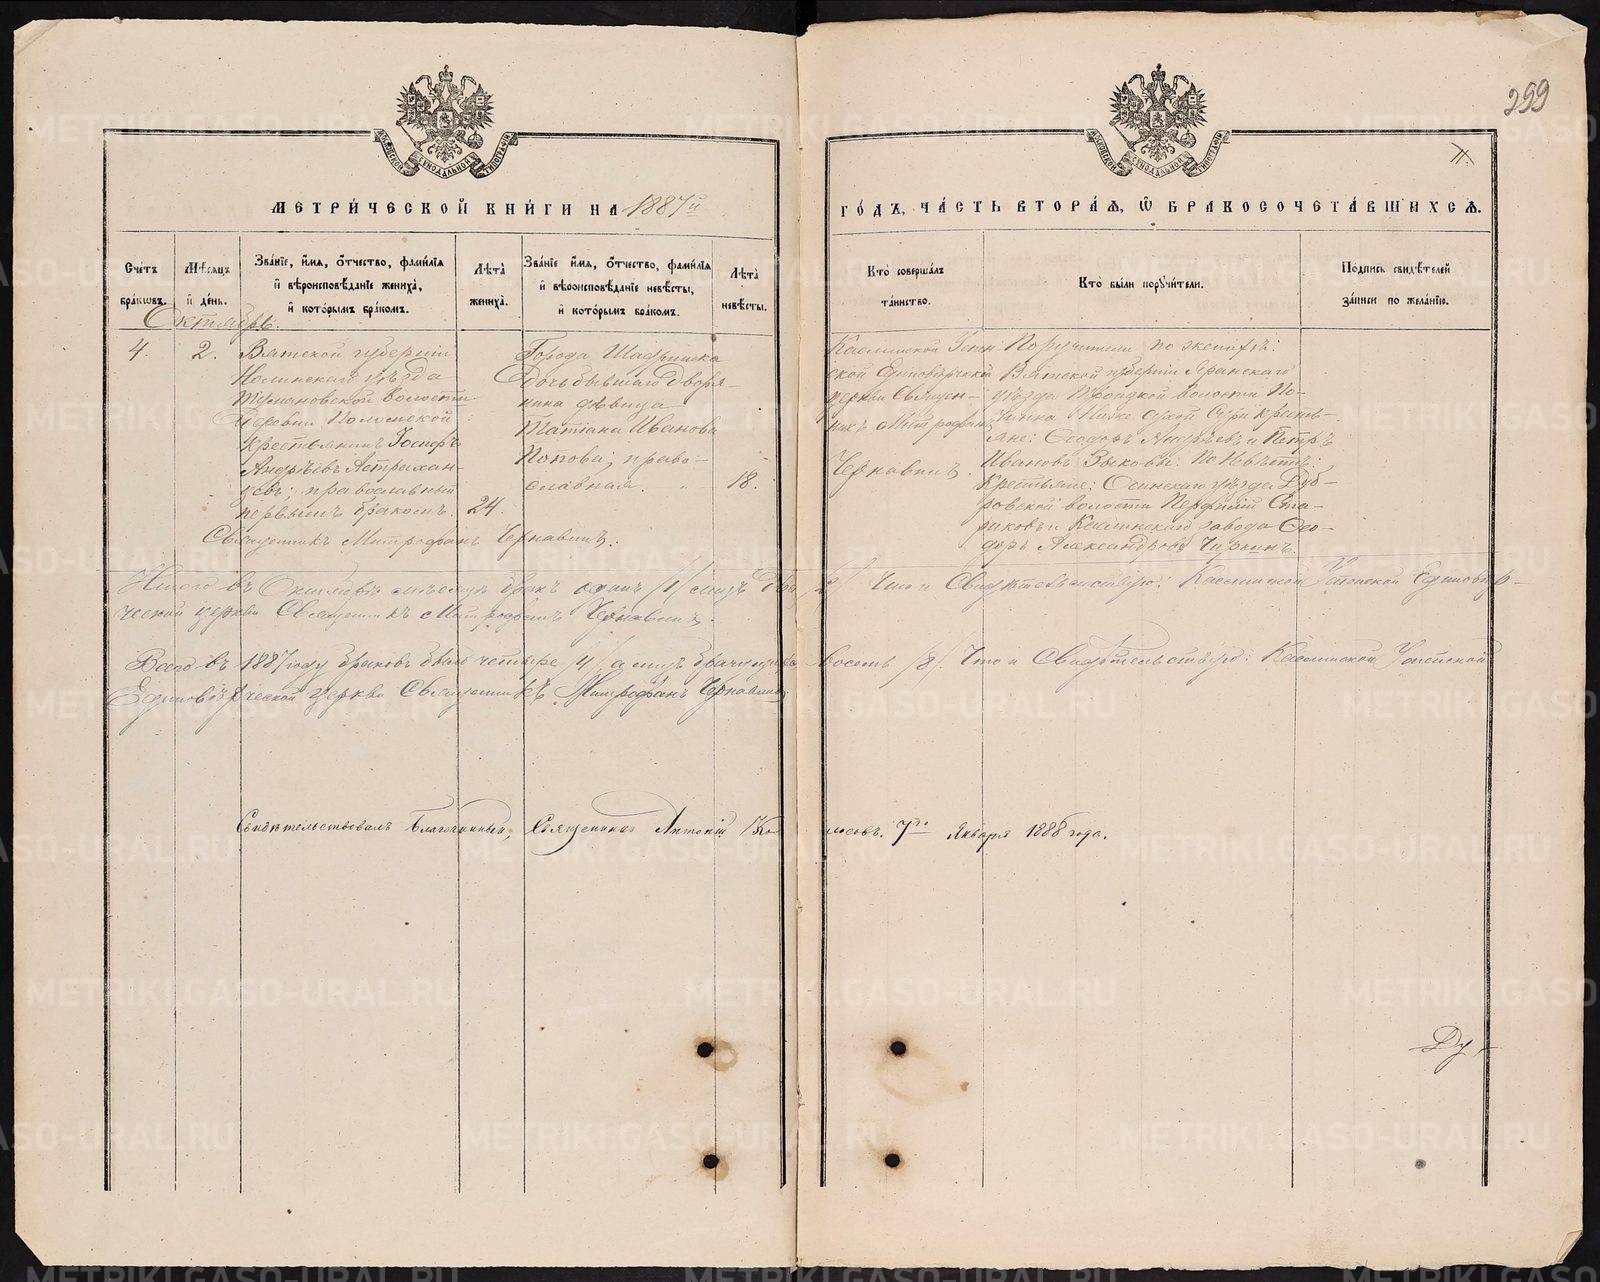 299
МОСКОВСКОЙ СѴНОДАЛЬНОЙ ТИПОГРАФІИ
МОСКОВСКОЙ СѴНОДАЛЬНОЙ ТИПОГРАФІИ
МЕТРИ́ЧЕСКОЙ КНИ́ГИ НА 1887й
ГО́ДЪ, ЧА́СТЬ ВТОРА́Я, Ѡ БРАКОСОЧЕТА́ВШИХСЯ.
Сче́тъ бра́ковъ.
Мѣ́сяцъ и де́нь.
Зва́нїе, и́мя, о́тчество, фами́лїя и вѣроисповѣ́данїе жениха̀, и кото́рымъ бра́комъ.
Лѣта̀ жениха̀.
Зва́нїе, и́мя, о́тчество, фами́лїя и вѣроисповѣ́данїе невѣ́сты, и кото́рымъ бра́комъ.
Лѣта̀ невѣ́сты.
Кто̀ соверша́лъ та́инство.
Кто̀ бы́ли поручи́тели.
Подпись свидѣ́телей за́писи по жела́нїю.
Октябрь.
4.
2.
Вятской губерніи
Нолинскаго уѣзда
Тумановской волости
Деревни
крестьянинъ
Андрѣевъ Астрахан-
цевъ; православный
первымъ бракомъ.
24.
Города Шадринска
Дочь бывшаго Дворя-
нина дѣвица
Татіана Иванова
Попова; право-
славная.
18.
Каслинской Успен-
ской Единовѣрческой
церкви Священ-
никъ Митрофанъ
Чернавинъ.
Поручители по женихѣ:
Вятской губерніи Яранскаго
уѣзда Троицкой волости По-
чинка крестья-
не: Ѳеодоръ Андрѣевъ и Петръ
Ивановъ Зыковы. По невѣстѣ:
Крестьяне; Осинскаго уѣзда Дуб-
ровской волости Перфилій Ста-
риковъ и Каслинскаго завода Ѳео-
доръ Александровъ Чиркинъ.
Священникъ Митрофанъ Чернавинъ.
Итого въ Октябрѣ мѣсяцѣ бракъ одинъ /1/ лицъ два /2/ Что и Свидѣтельствую: Каслинской Успенской Единовѣр-
ческой церкви Священникъ Митрофанъ Чернавинъ.
Всего въ 1887 году браковъ было четыре /4/, а лицъ восемь /8/. Что и Свидѣтельствую: Каслинской Успенской
Единовѣрческой церкви Священникъ Митрофанъ Чернавинъ
Свидѣтельствовалъ Благочинный, Священникъ Антоній 7го Января 1888 года.
Ду-